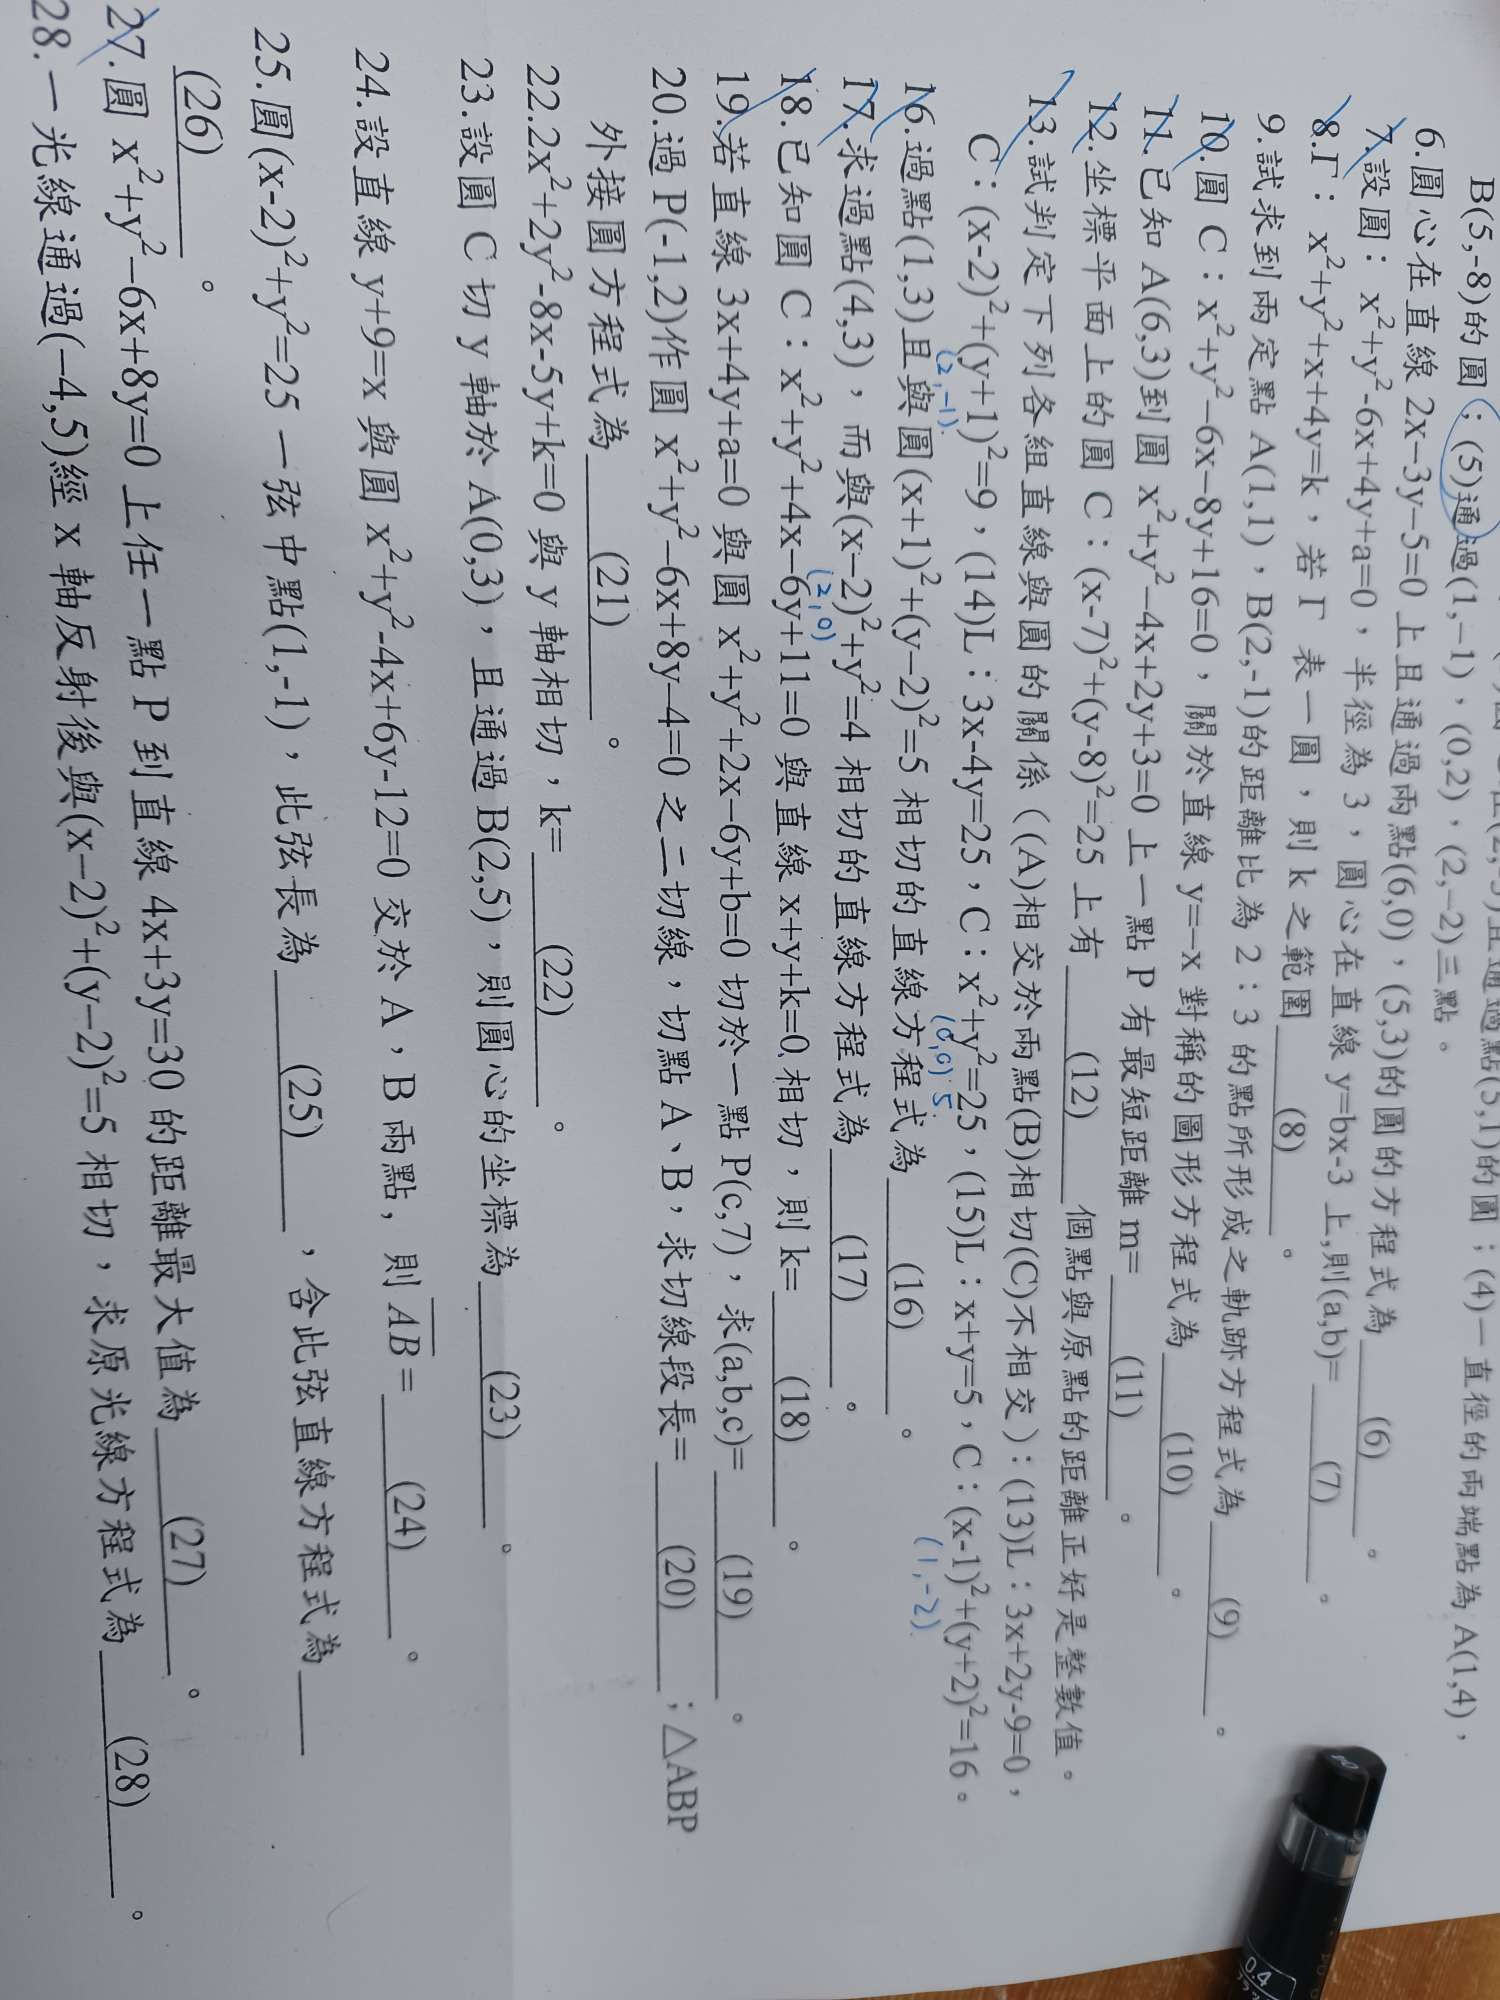 過點(5,1)的圓；(4)一直徑的兩端點為 A(1,4)，
B(5,-8)的圓；(5)通過(1,−1)，(0,2)，(2,−2)三點。
6.圓心在直線 2x−3y−5=0 上且通過兩點(6,0)，(5,3)的圓的方程式為 (6) 。
7.設圓：x²+y²-6x+4y+a=0，半徑為 3，圓心在直線 y=bx-3 上,則(a,b)= (7) 。
8.Γ：x²+y²+x+4y=k，若 Γ 表一圓，則 k 之範圍 (8) 。
9.試求到兩定點 A(1,1)，B(2,-1)的距離比為 2：3 的點所形成之軌跡方程式為 (9) 。
10.圓 C：x²+y²−6x−8y+16=0，關於直線 y=−x 對稱的圖形方程式為 (10) 。
11.已知 A(6,3)到圓 x²+y²−4x+2y+3=0 上一點 P 有最短距離 m= (11) 。
12.坐標平面上的圓 C：(x-7)²+(y-8)²=25 上有 (12) 個點與原點的距離正好是整數值。
13.試判定下列各組直線與圓的關係（(A)相交於兩點(B)相切(C)不相交）：(13)L：3x+2y-9=0，
C：(x-2)²+(y+1)²=9，(14)L：3x-4y=25，C：x²+y²=25，(15)L：x+y=5，C：(x-1)²+(y+2)²=16。
(2,-1).
(0,0) 5.
(1,-2)
16.過點(1,3)且與圓(x+1)²+(y−2)²=5 相切的直線方程式為 (16) 。
17.求過點(4,3)，而與(x−2)²+y²=4 相切的直線方程式為 (17) 。
(2,0)
18.已知圓 C：x²+y²+4x−6y+11=0 與直線 x+y+k=0 相切，則 k= (18) 。
19.若直線 3x+4y+a=0 與圓 x²+y²+2x−6y+b=0 切於一點 P(c,7)，求(a,b,c)= (19) 。
20.過 P(-1,2)作圓 x²+y²−6x+8y−4=0 之二切線，切點 A、B，求切線段長= (20) ；△ABP
外接圓方程式為 (21) 。
22.2x²+2y²-8x-5y+k=0 與 y 軸相切，k= (22) 。
23.設圓 C 切 y 軸於 A(0,3)，且通過 B(2,5)，則圓心的坐標為 (23) 。
24.設直線 y+9=x 與圓 x²+y²-4x+6y-12=0 交於 A，B 兩點，則 AB= (24) 。
25.圓(x-2)²+y²=25 一弦中點(1,-1)，此弦長為 (25) ，含此弦直線方程式為
(26) 。
27.圓 x²+y²−6x+8y=0 上任一點 P 到直線 4x+3y=30 的距離最大值為 (27) 。
28.一光線通過(−4,5)經 x 軸反射後與(x−2)²+(y−2)²=5 相切，求原光線方程式為 (28) 。
0.4